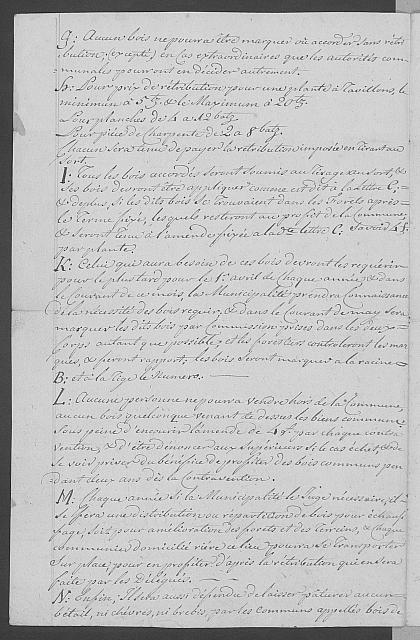 G: Aucun bois ne pourra être marquer n'y accorder sans rétri
bution, (excepté) en cas extraordinaires que les autorités com-
munales pourront en décider autrement.
H: Pour prix de rétribution pour une plante à Tavillons, le
minimum à 5 btz & le Maximum à 20 btz.
Pour planches de 4 à 12 batz
Pour pièce de Charpente de 2 à 8 batz.
Chacun sera tenu de payer la rétribution imposée en tirant au
sort.
I: Tous les bois accordés seront soumis au tirage au sort, &
ses bois devront être appliquer comme est dit à la lettre C;
& de plus, Si les dits bois se trouvaient dans les Forets après
le Terme fixé, les quels resteront au profit de la Commune,
& seront tenu à l'amende fixée a la lettre C: Savoir 4 f.
par plante.
K: Celui qui aura besoin de ces bois devront les requérir
pour le plus tard pour le 1r. avril de Chaque année & dans
le Courant de ce mois, la Municipalité prendra Connaissance
de la nécessité des bois requis, & dans le Courant de may sera
marquer les dits bois par Commission prises dans les deux
Corps autant que possible; et les forestiers controleront les mar
ques, & feront rapport; les bois seront marquer à la racine
B: et à la tige le Numero.
L: Aucune personne ne pourra vendre hors de la Commune,
aucun bois quelconque venant de dessus les biens communs
sous peine d'encourir l'amende de 4 f. par chaque contra
vention, & d'être dénoncer aux Supérieurs si le cas échet, & de
se voir priver du bénéfice de profiter des bois communs pen
dant deux ans dès la Contravention.
M: Chaque année Si la Municipalité le Juge nécessaire, il
se fera une distribution ou répartition de bois pour échauf
fage, soit pour amélioration des forets et des terreins, & Chaque
communier domicilié rière ce lieu pourra se transporter
sur place pour en profiter d'après la rétribution qui en sera
faite par les Délégués.
N: Enfin, Il sera aussi défendu de laisser pâturer aucun
bétail, ni chèvres, ni brebis, par les communs appellés bois de